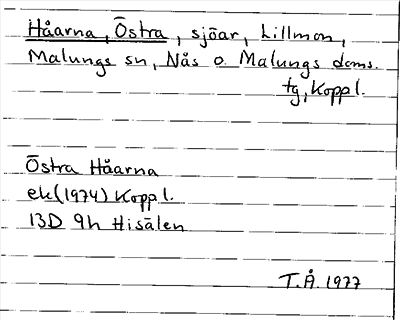 Håarna, Östra, sjöar, Lillmon,
Malungs sn, Nås o. Malungs doms.
tg, Koppl.
Östra Håarna
ek (1974) Koppl.
13D 9h Hisälen
T.Å 1977